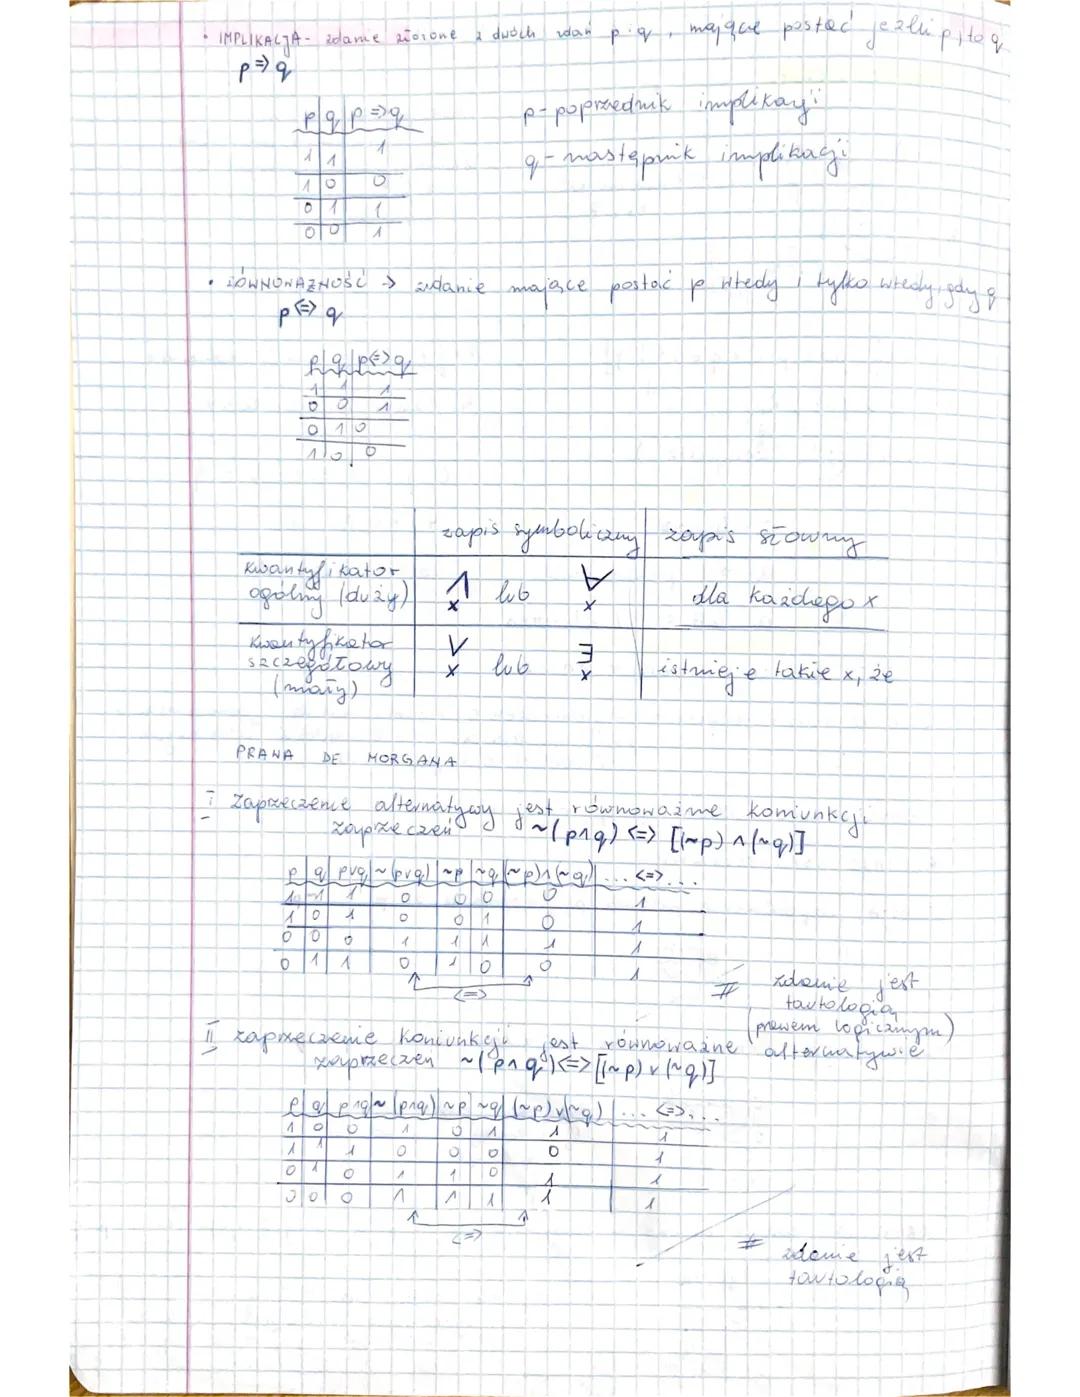 • IMPLIKACJA - zdanie złożone z dwóch zdań p i q, mające postać jeżeli p, to q
p => q
p | q | p => q
1 | 1 | 1
1 | 0 | 0
0 | 1 | 1
0 | 0 | 1
p - poprzednik implikacji
q - następnik implikacji
• RÓWNOWAŻNOŚĆ -> zdanie mające postać p wtedy i tylko wtedy, gdy q
p <=> q
p | q | p <=> q
1 | 1 | 1
0 | 0 | 1
0 | 1 | 0
1 | 0 | 0
zapis symboliczny | zapis słowny
kwantyfikator
ogólny (duży) | ⋀ x lub ∀ x | dla każdego x
kwantyfikator
szczegółowy
(mały) | ⋁ x lub ∃ x | istnieje takie x, że
PRAWA DE MORGANA
I zaprzeczenie alternatywy jest równoważne koniunkcji
zaprzeczeń ~(p ∧ q) <=> [(~p) ∧ (~q)]
p | q | p∨q | ~(p∨q) | ~p | ~q | (~p)∧(~q) | ... <=> ...
1 | 1 | 1 | 0 | 0 | 0 | 0 | 1
1 | 0 | 1 | 0 | 0 | 1 | 0 | 1
0 | 0 | 0 | 1 | 1 | 1 | 1 | 1
0 | 1 | 1 | 0 | 1 | 0 | 0 | 1
<=>
# zdanie jest
tautologią
(prawem logicznym)
II zaprzeczenie koniunkcji jest równoważne alternatywie
zaprzeczeń ~(p ∧ q) <=> [(~p) ∨ (~q)]
p | q | p∧q | ~(p∧q) | ~p | ~q | (~p)∨(~q) | ... <=> ...
1 | 0 | 0 | 1 | 0 | 1 | 1 | 1
1 | 1 | 1 | 0 | 0 | 0 | 0 | 1
0 | 1 | 0 | 1 | 1 | 0 | 1 | 1
0 | 0 | 0 | 1 | 1 | 1 | 1 | 1
<=>
# zdanie jest
tautologią